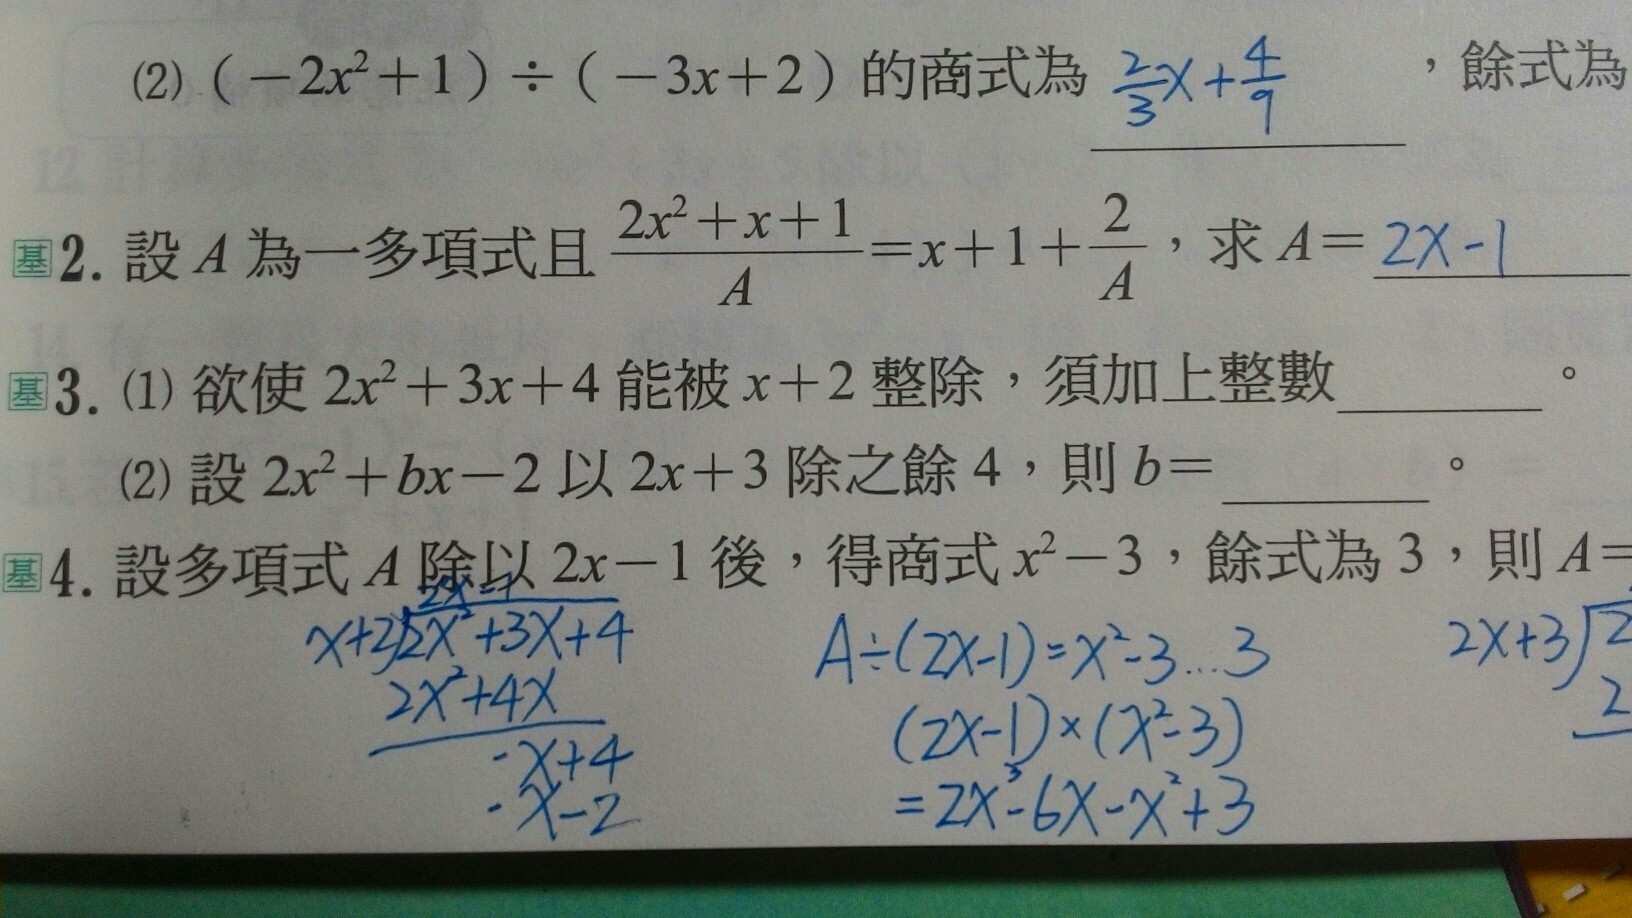 (2) (－2x²＋1)÷(－3x＋2)的商式為 2/3 x + 4/9 ，餘式為
基 2. 設 A 為一多項式且 (2x²＋x＋1)/A ＝x＋1＋ 2/A ，求 A＝ 2x-1
基 3. (1) 欲使 2x²＋3x＋4 能被 x＋2 整除，須加上整數______。
(2) 設 2x²＋bx－2 以 2x＋3 除之餘 4，則 b＝______。
基 4. 設多項式 A 除以 2x－1 後，得商式 x²－3，餘式為 3，則 A＝
2x-1
x+2)2x²+3x+4
2x²+4x
-x+4
-x-2
A÷(2x-1)=x²-3...3
(2x-1)×(x²-3)
=2x³-6x-x²+3
2x+3)2
2